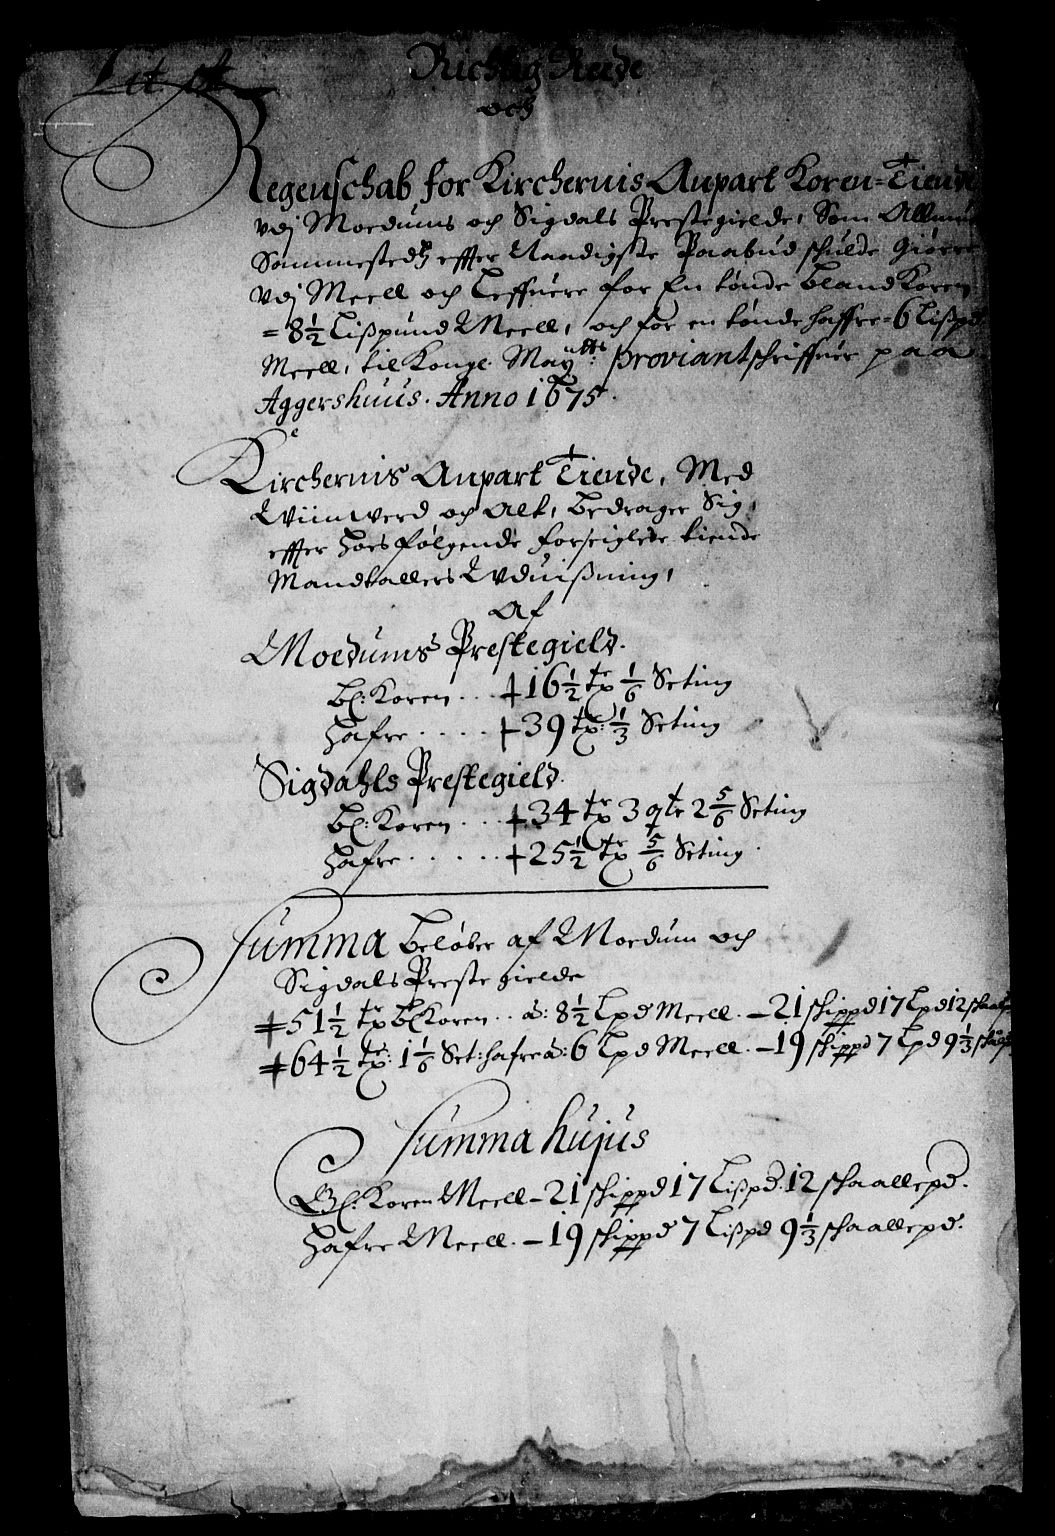 Lit. A
Richtig Rede
och
Regenschab for Kirchernis Anpart Koren=Tiende
vdj Moedums och Sigdals Prestegielde, Som Allmuen
Sammestedtz effter Naadigste Paabud schulde giøre
vdj Meell och Leffuere for En tønde bland Koren
= 8½ Lißpund Meell, och for en tønde haffre = 6 Lißpd
Meell, til Kongl. Maytts: proviantschriffuer paa
Aggershuus. Anno 1675.
Kirchernis Anpart Tiende, Med
Wiinwerd och Alt, bedrager Sig,
effter hoes følgende forseiglede tiende
Mandtallers Vduißning,
Af
Moedums Prestegield.
bl: Koren . . . 16½ tr 1/6 Seting
hafre . . . . . 39 tr: 1/3 Seting
Sigdahls Prestegield.
bl: Koren . . . 34 tr 3 qte 2 5/6 Seting
hafre . . . . . . 25½ tr 5/6 Seting.
Summa beløber af Moedum och
Sigdals Prestegielde
51½ tr bl Koren . . a: 8½ Lpd Meell. – 21 schippd 17 Lpd 12 schaalp
64½ tr: 1 1/6 Set: hafre a: 6 Lpd Meell. – 19 schippd 7 Lpd 9 1/3 schaalp
Summa hujus
Bl: Koren Meell – 21 schippd 17 Lißpd. 12 schaallepd.
Hafre Meell. – 19 schippd 7 Lißpd 9 1/3 schaallepd.